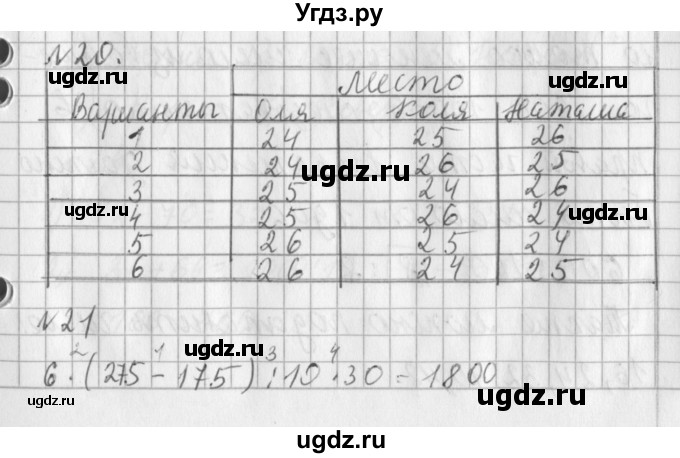 Угдз.ру
№20.
Место
Варианты Оля Коля Наташа
1 24 25 26
2 24 26 25
3 25 24 26
4 25 26 24
5 26 25 24
6 26 24 25
№21
2 1 3 4
6·(275-175):10·30=1800
ugdz.ru
ugdz.ru
ugdz.ru
ugdz.ru
ugdz.ru
ugdz.ru
ugdz.ru
ugdz.ru
ugdz.ru
ugdz.ru
ugdz.ru